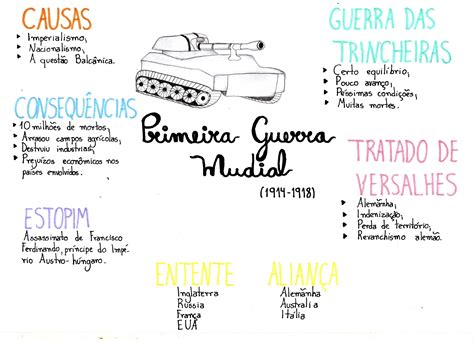 CAUSAS
Imperialismo;
Nacionalismo;
A questão Balcânica.
CONSEQUÊNCIAS
10 milhões de mortos;
Arrasou campos agrícolas;
Destruiu industrias;
Prejuízos econômicos nos
países envolvidos.
ESTOPIM
Assassinato de Francisco
Ferdinando, príncipe do Impé
rio Austro-húngaro.
Primeira Guerra
Mudial
(1914-1918)
ENTENTE
Inglaterra
Rússia
França
EUA
ALIANÇA
Alemanha
Australia
Itália
GUERRA DAS
TRINCHEIRAS
Certo equilíbrio;
Pouco avanço;
Péssimas condições;
Muitas mortes.
TRATADO DE
VERSALHES
Alemanha;
Indenização;
Perda de território;
Revanchismo alemão.